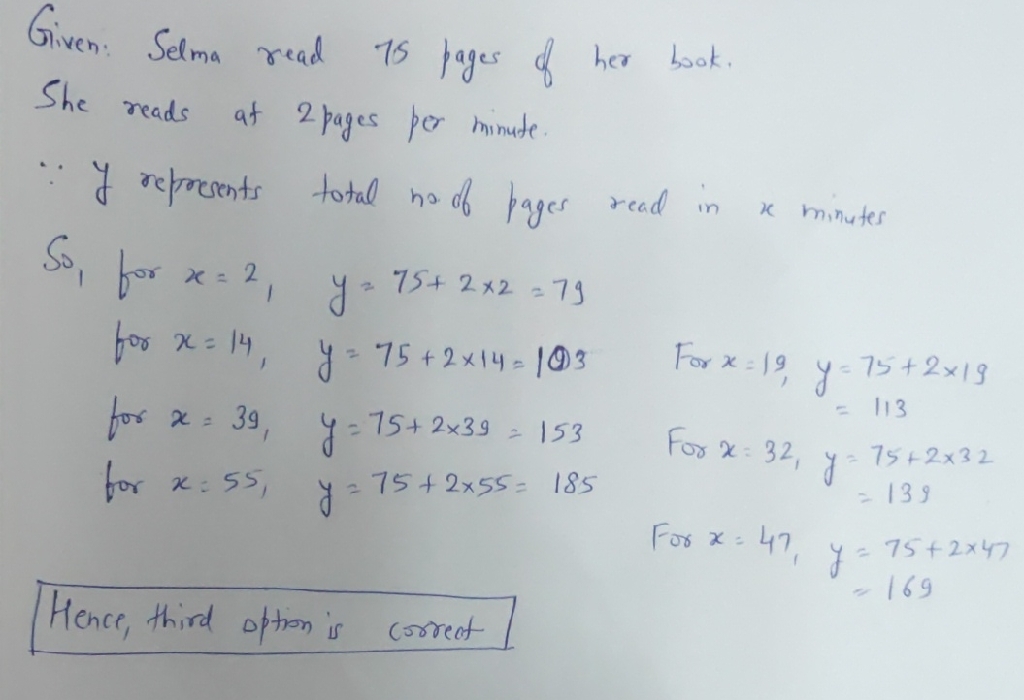 Given: Selma read 75 pages of her book.
She reads at 2 pages per minute.
∵ y represents total no. of pages read in x minutes
So, for x = 2, y = 75 + 2×2 = 79
for x = 14, y = 75 + 2×14 = 103
for x = 39, y = 75 + 2×39 = 153
for x = 55, y = 75 + 2×55 = 185
For x = 19, y = 75 + 2×19
= 113
For x = 32, y = 75 + 2×32
= 139
For x = 47, y = 75 + 2×47
= 169
Hence, third option is correct